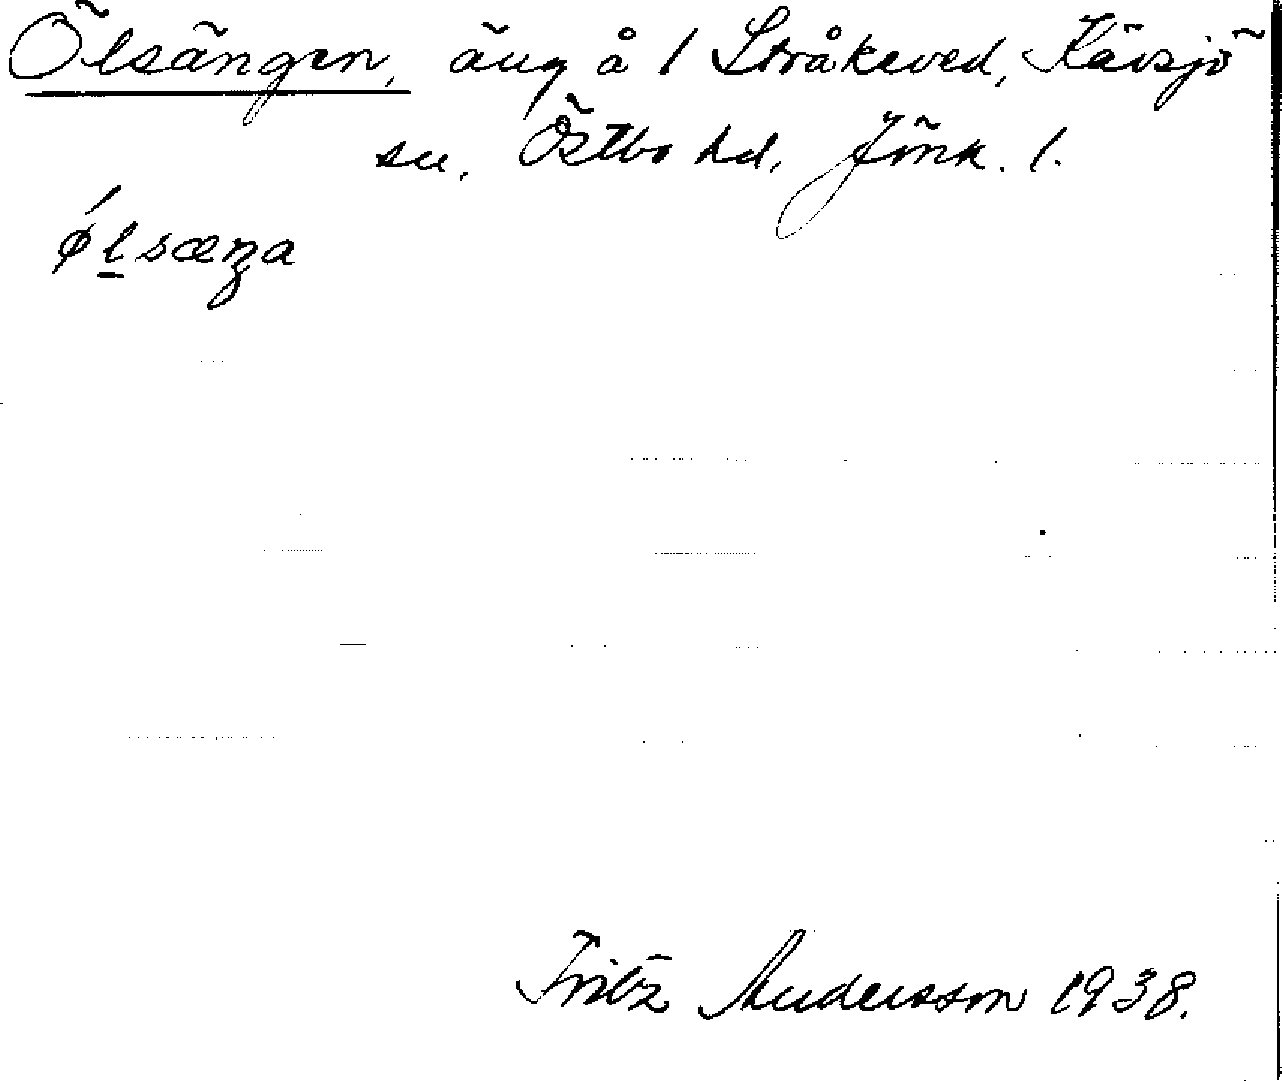 Ölsängen, äng å 1 Stråkeved, Kävsjö
sn, Östbo hd, Jönk. l.
ǿlsæŋa
Fritz Andersson 1938.